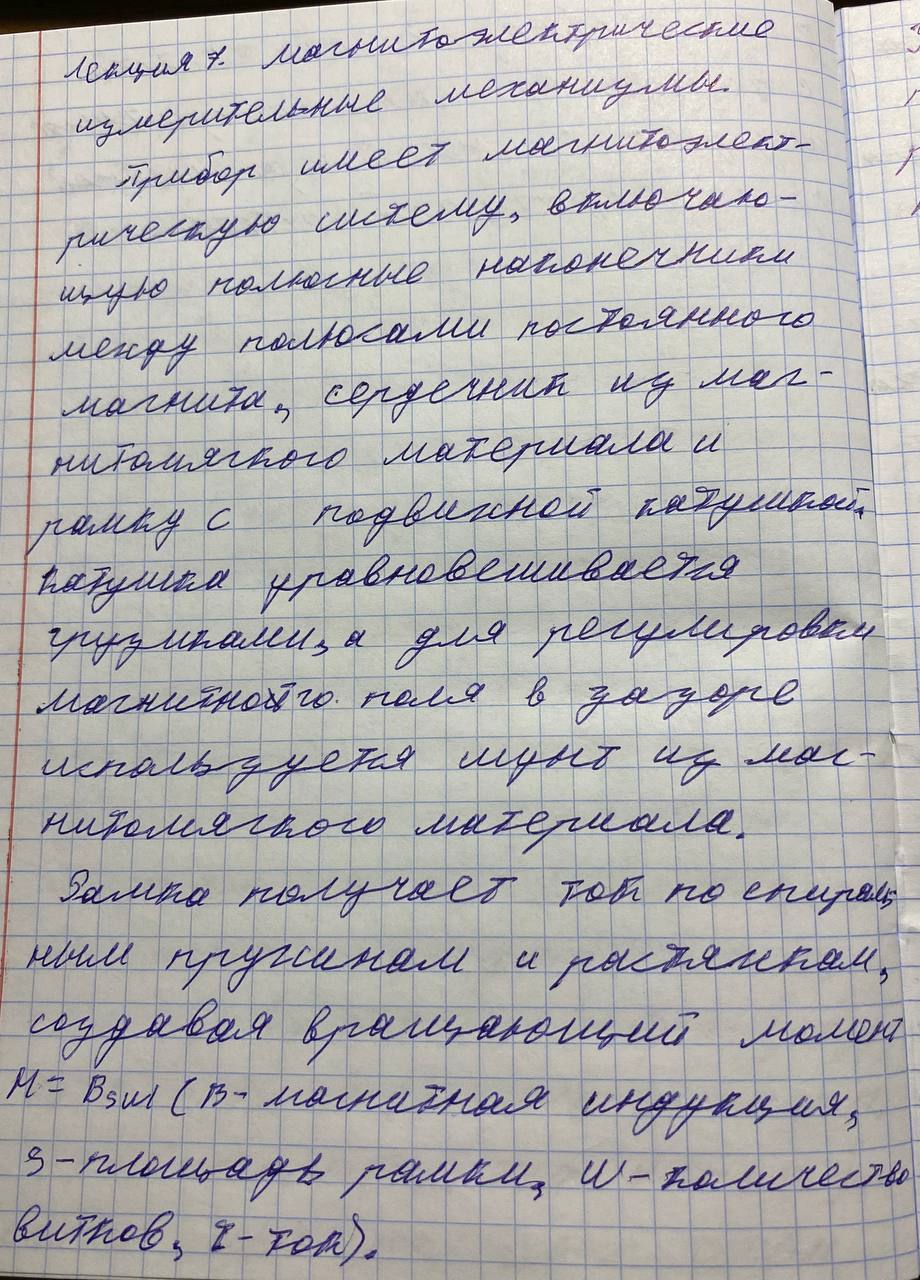 Лекция 7. Магнитоэлектрические
измерительные механизмы.
Прибор имеет магнитоэлект-
рическую систему, включаю-
щую полюсные наконечники
между полюсами постоянного
магнита, сердечник из маг-
нитомягкого материала и
рамку с подвижной катушкой.
Катушка уравновешивается
грузиками, а для регулировки
магнитного поля в зазоре
используется шунт из маг-
нитомягкого материала.
Рамка получает ток по спираль
ным пружинам и растяжкам,
создавая вращающий момент
M = BswI (B - магнитная индукция,
s - площадь рамки, w - количество
витков, I - ток).